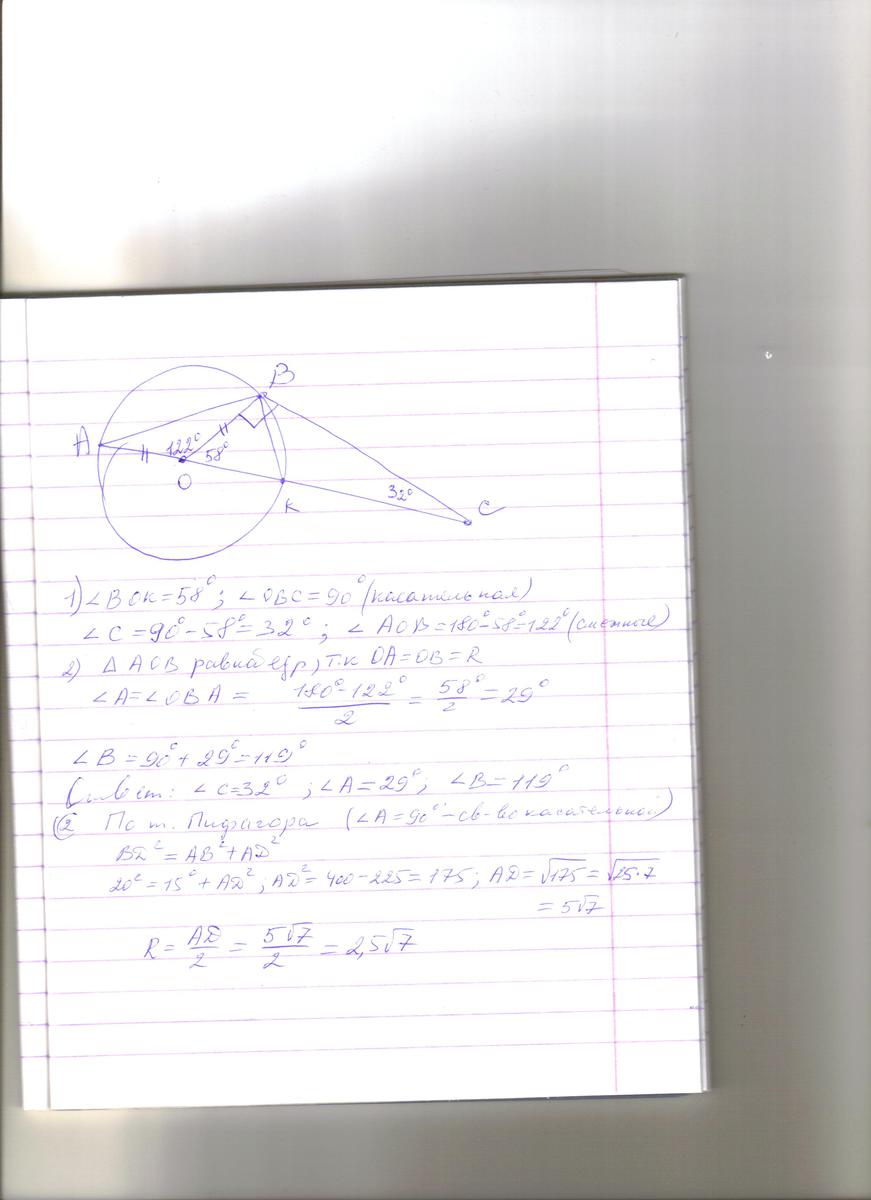 B
A
122°
58°
O
K
32°
C
1) ∠BOK=58°; ∠OBC=90° (касательная)
∠C=90°-58°=32°; ∠AOB=180°-58°=122° (смежные)
2) △AOB равнобедр, т.к OA=OB=R
∠A=∠OBA = (180°-122°)/2 = 58°/2 = 29°
∠B=90°+29°=119°
Ответ: ∠C=32°; ∠A=29°; ∠B=119°
(2 По т. Пифагора (∠A=90°-св-во касательной)
BD²=AB²+AD²
20²=15²+AD²; AD²=400-225=175; AD=√175=√25·7
=5√7
R=AD/2=5√7/2=2,5√7